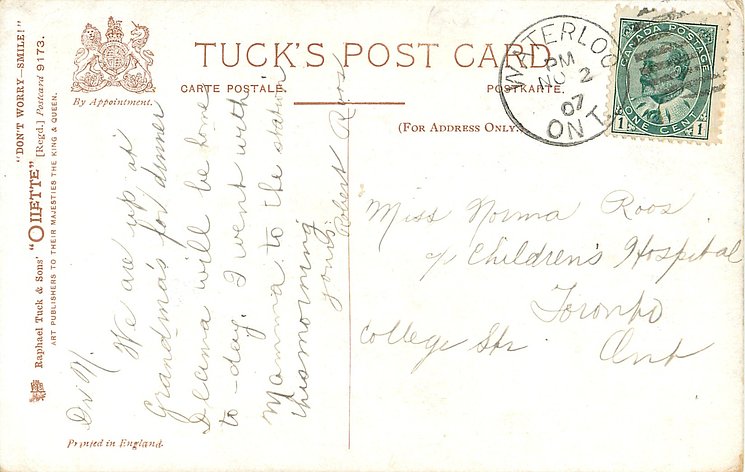 TUCK'S POST CARD
CARTE POSTALE.
POSTKARTE.
(FOR ADDRESS ONLY.)
By Appointment.
"DON'T WORRY—SMILE!"
Raphael Tuck & Sons' "OILETTE" [Regd.] Postcard 9173.
ART PUBLISHERS TO THEIR MAJESTIES THE KING & QUEEN.
Printed in England.
WATERLOO
PM
NO 2
07
ONT.
CANADA POSTAGE
ONE CENT
1 1
We are up at
Grandma's for dinner
will be home
to-day. I went with
Mamma to the station
this morning
yours.
Robert Roos
Miss Norma Roos
c/o Children's Hospital
Toronto
College Str Ont